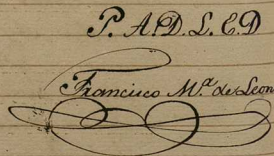 P. A. D. L. E. D
Francisco M.ª de Leon